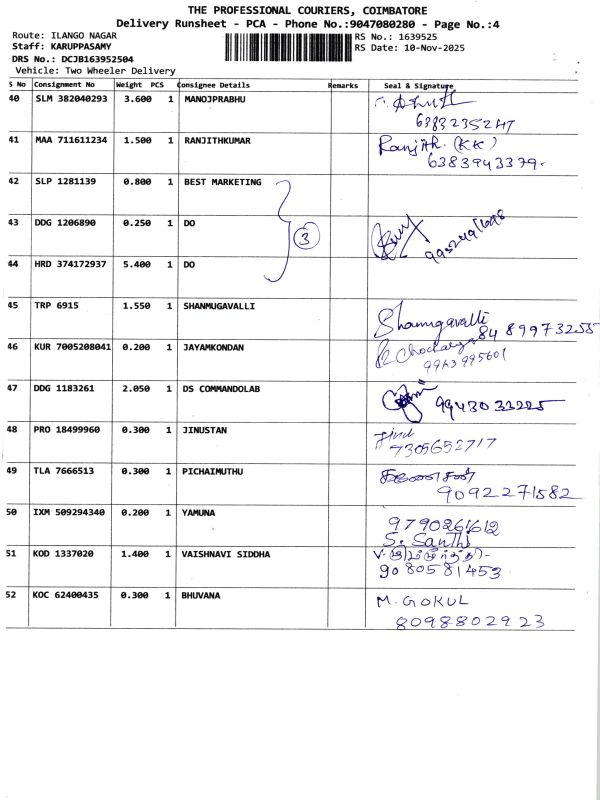 THE PROFESSIONAL COURIERS, COIMBATORE
Delivery Runsheet - PCA - Phone No.:9047080280 - Page No.:4
Route: ILANGO NAGAR
RS No.: 1639525
Staff: KARUPPASAMY
RS Date: 10-Nov-2025
DRS No.: DCJB163952504
Vehicle: Two Wheeler Delivery
S No Consignment No Weight PCS Consignee Details Remarks Seal & Signature
40 SLM 382040293 3.600 1 MANOJPRABHU
6383235247
41 MAA 711611234 1.500 1 RANJITHKUMAR Ranjith. (KK)
6383943379.
42 SLP 1281139 0.800 1 BEST MARKETING
43 DDG 1206890 0.250 1 DO
3
44 HRD 374172937 5.400 1 DO
45 TRP 6915 1.550 1 SHANMUGAVALLI Shanmugavalli
84 89973255
46 KUR 7005208041 0.200 1 JAYAMKONDAN
9943995601
47 DDG 1183261 2.050 1 DS COMMANDOLAB
9943031225
48 PRO 18499960 0.300 1 JINUSTAN Jinu
7305652717
49 TLA 7666513 0.300 1 PICHAIMUTHU
9092271582
50 IXM 509294340 0.200 1 YAMUNA 9790261612
S. Santhi
51 KOD 1337020 1.400 1 VAISHNAVI SIDDHA
9080581453
52 KOC 62400435 0.300 1 BHUVANA M. GOKUL
8098802923